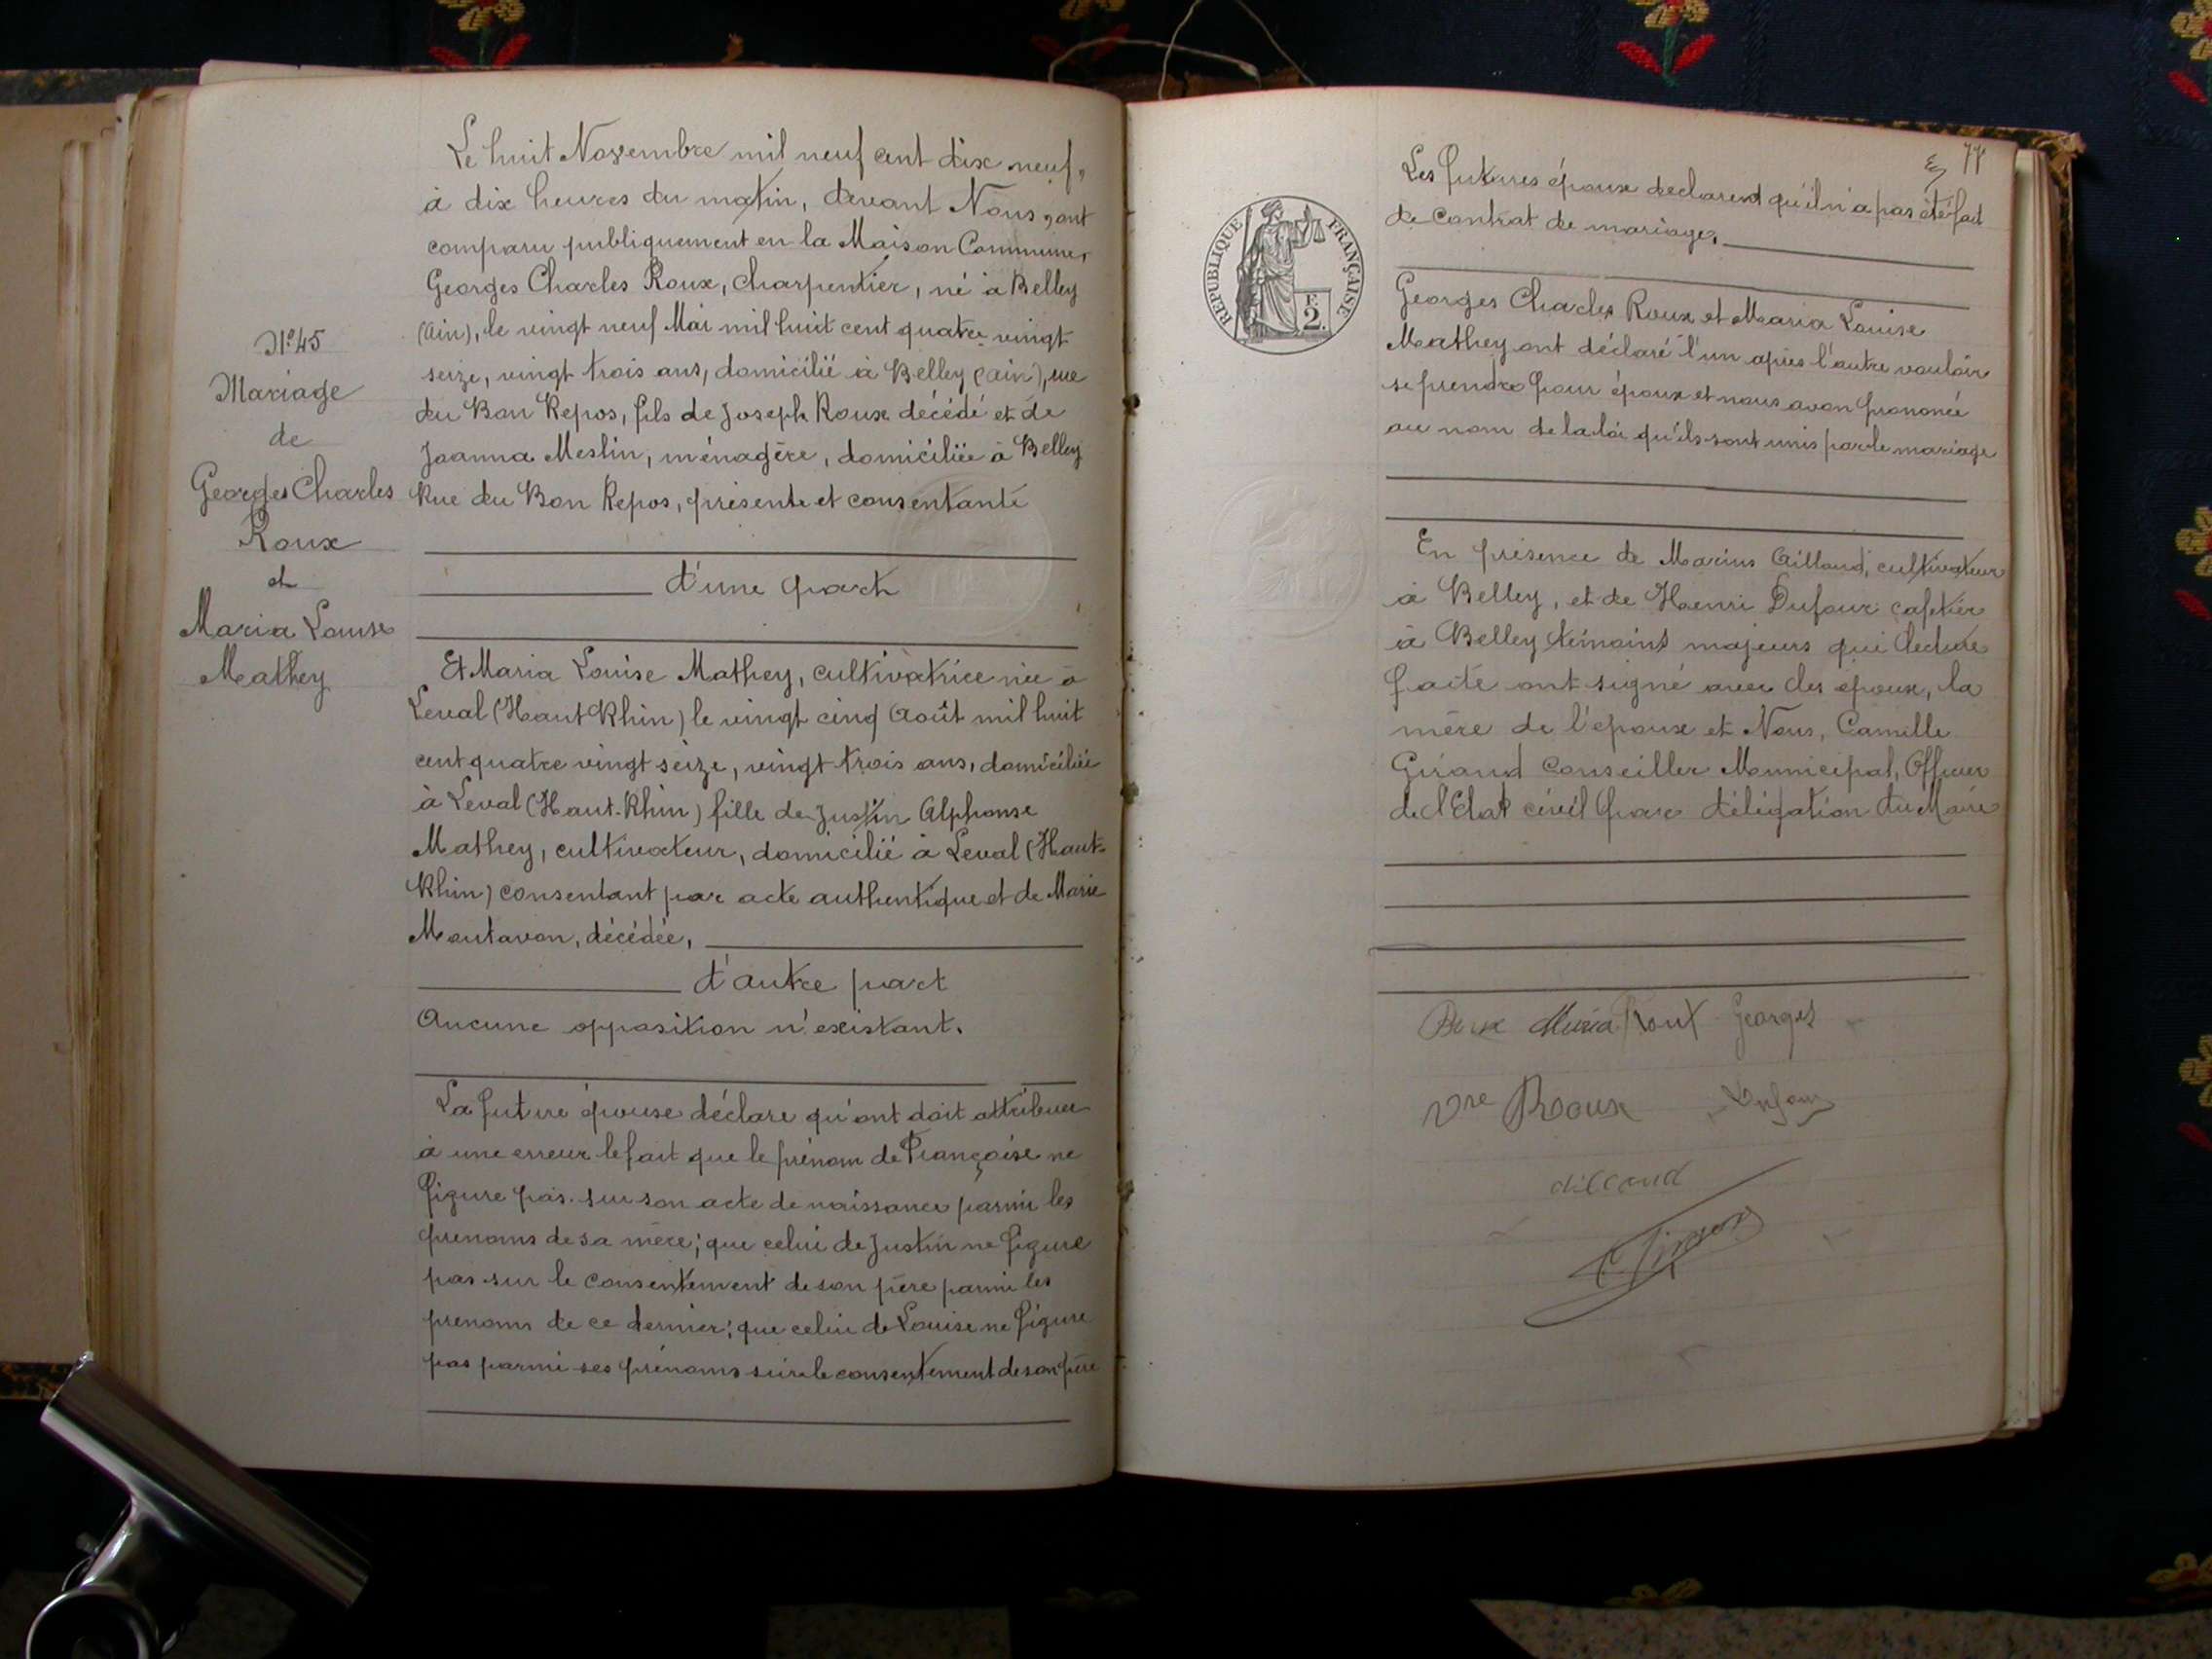 N°45
Mariage
de
Georges Charles
Roux
et
Maria Louise
Mathey
Le huit Novembre mil neuf cent dix neuf,
à dix heures du matin, devant Nous, ont
comparu publiquement en la Maison Commune,
Georges Charles Roux, charpentier, né à Belley
(Ain), le vingt neuf Mai mil huit cent quatre vingt
seize, vingt trois ans, domicilié à Belley (ain), rue
du Bon Repos, fils de Joseph Roux décédé et de
Joanna Meslin, ménagère, domiciliée à Belley
Rue du Bon Repos, présente et consentante
d'une part
Et Maria Louise Mathey, cultivatrice née à
Leval (Haut Rhin) le vingt cinq Août mil huit
cent quatre vingt seize, vingt trois ans, domiciliée
à Leval (Haut-Rhin) fille de Justin Alphonse
Mathey, cultivateur, domicilié à Leval (Haut-
Rhin) consentant par acte authentique et de Marie
Montavon, décédée,
d'autre part
Aucune opposition n'existant.
La future épouse déclare qu'ont doit attribuer
à une erreur le fait que le prénom de Françoise ne
figure pas sur son acte de naissance parmi les
prenoms de sa mère; que celui de Justin ne figure
pas sur le consentement de son père parmi les
prenoms de ce dernier; que celui de Louise ne figure
pas parmi ses prénoms sur le consentement de son père
77
REPUBLIQUE FRANÇAISE
2
Les futures époux declarent qu'il n'a pas été fait
de contrat de mariage.
Georges Charles Roux et Maria Louise
Mathey ont déclaré l'un après l'autre vouloir
se prendre pour époux et nous avon prononcé
au nom de la loi qu'ils sont unis par le mariage
En présence de Marius Aillaud, cultivateur
à Belley, et de Henri Dufour cafetier
à Belley témoins majeurs qui lecture
faite ont signé avec les époux, la
mère de l'epoux et Nous, Camille
Giraud Conseiller Municipal, Officier
de l'Etat civil par délégation du Maire
Maria Roux Georges
Vve Roux Dufour